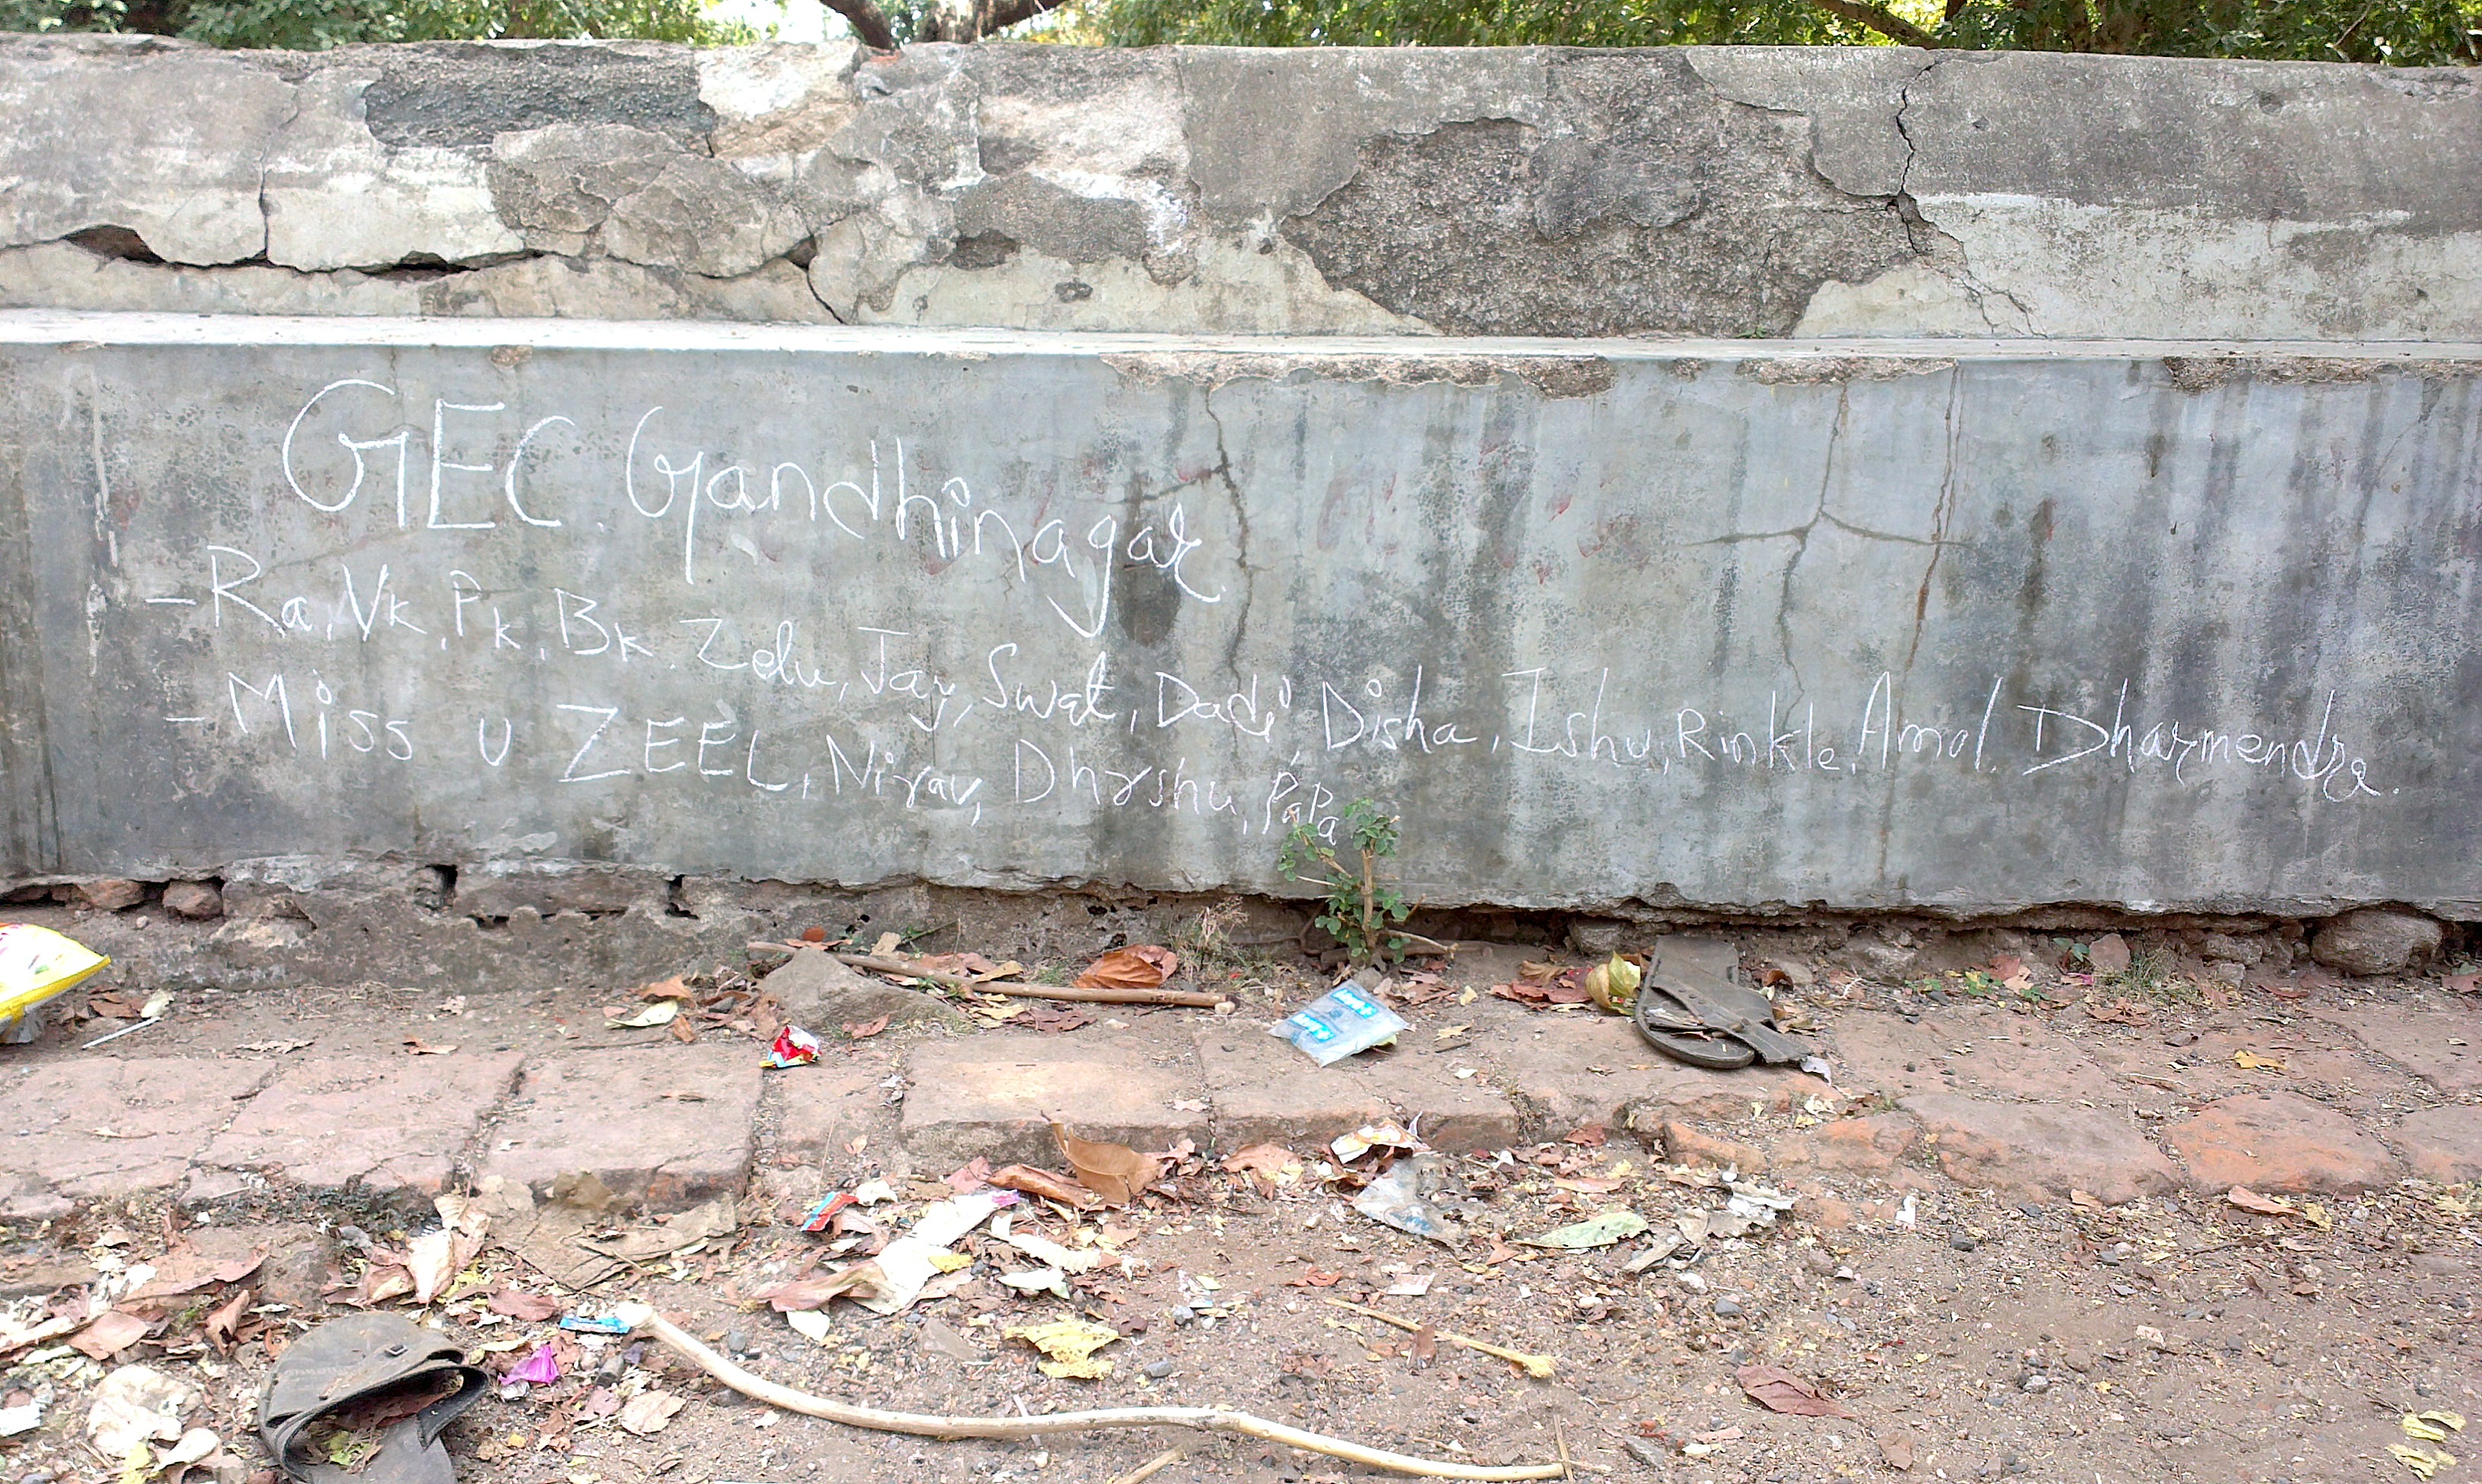 GEC. Gandhinagar.
- Ra, Vk, Pk, Bk, Zelu, Jay, Swat, Dadi, Disha, Ishu, Rinkle, Amol, Dharmendra.
- Miss u ZEEL, Nirav, Dhrshu, PaPa